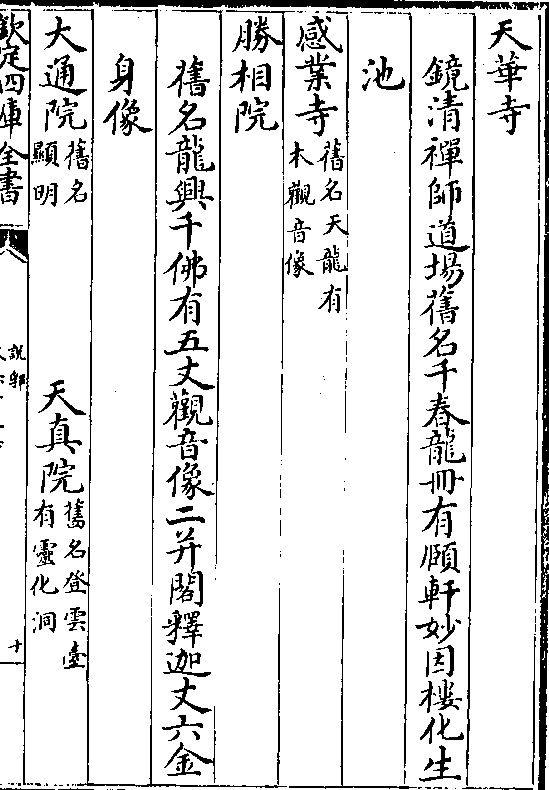 天華寺
鏡清禪師道場舊名千春龍冊有頤軒妙因樓化生
池
感業寺舊名天龍有
木觀音像
勝相院
舊名龍興千佛有五丈觀音像二并閣釋迦丈六金
身像
大通院舊名
顯明
天真院舊名登雲臺
有靈化洞
欽定四庫全書
說郛
十